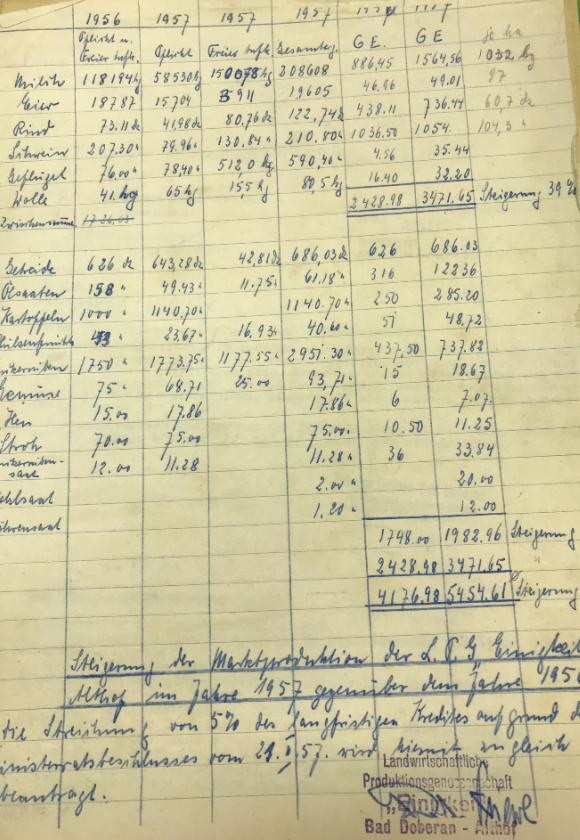 1956 1957 1957 1957
Pflicht u. Freier Aufk. Pflicht Freier Aufk. Gesamtg. G.E. G E je ha
Milch 118194 kg 58530 kg 150078 kg 208608 886,45 1564,56 1032 kg
Eier 18787 15704 3911 19605 46.96 49.01 97
Rind 73.11 dz 41,98 dz 80,76 dz 122,74 dz 438.11 736.44 60,7 dz
Schwein 207.30 " 79.96 " 130.84 " 210.80 " 1036.50 1054. 104,3 "
Geflügel 76,00 " 78,40 " 512,0 kg 590,40 " 4.56 35.44
Wolle 41 kg 65 kg 15,5 kg 80,5 kg 16.40 32.20
Zwischensumme 2428.98 3471.65 Steigerung 39 %
Getreide 626 dz 643,28 dz 42,81 dz 686,03 dz 626 686.03
Ölsaaten 158 " 49.43 " 11.75 " 61.18 " 316 122 36
Kartoffeln 1000 " 1140,70 " 1140.70 " 250 285.20
23,67 " 16.93 " 40.60 " 51 48.72
1750 " 1773.75 " 1177.55 " 2951.30 " 437.50 737.82
Gemüse 75 " 68.71 25.00 93,71 " 15 18.67
Heu 15.00 17,86 17.86 " 6 7.07.
Stroh 70.00 75.00 75.00 " 10.50 11.25
12.00 11.28 11.28 " 36 33.84
2.00 " 20.00
1.20 " 12.00
1748.00 1982.96 Steigerung
2428.98 3471.65 "
4176.98 5454.61 Steigerung
Steigerung der Marktproduktion der L.P.G Einigkeit
Althof im Jahre 1957 gegenüber dem Jahre 1956
die Streichung von 5% des langfristigen Kredites aufgrund d
inisterratsbeschlusses vom 57. wird hiermit zugleich
beantragt.
Landwirtschaftliche
Produktionsgenossenschaft
„Einigkeit"
Bad Doberan - Althof